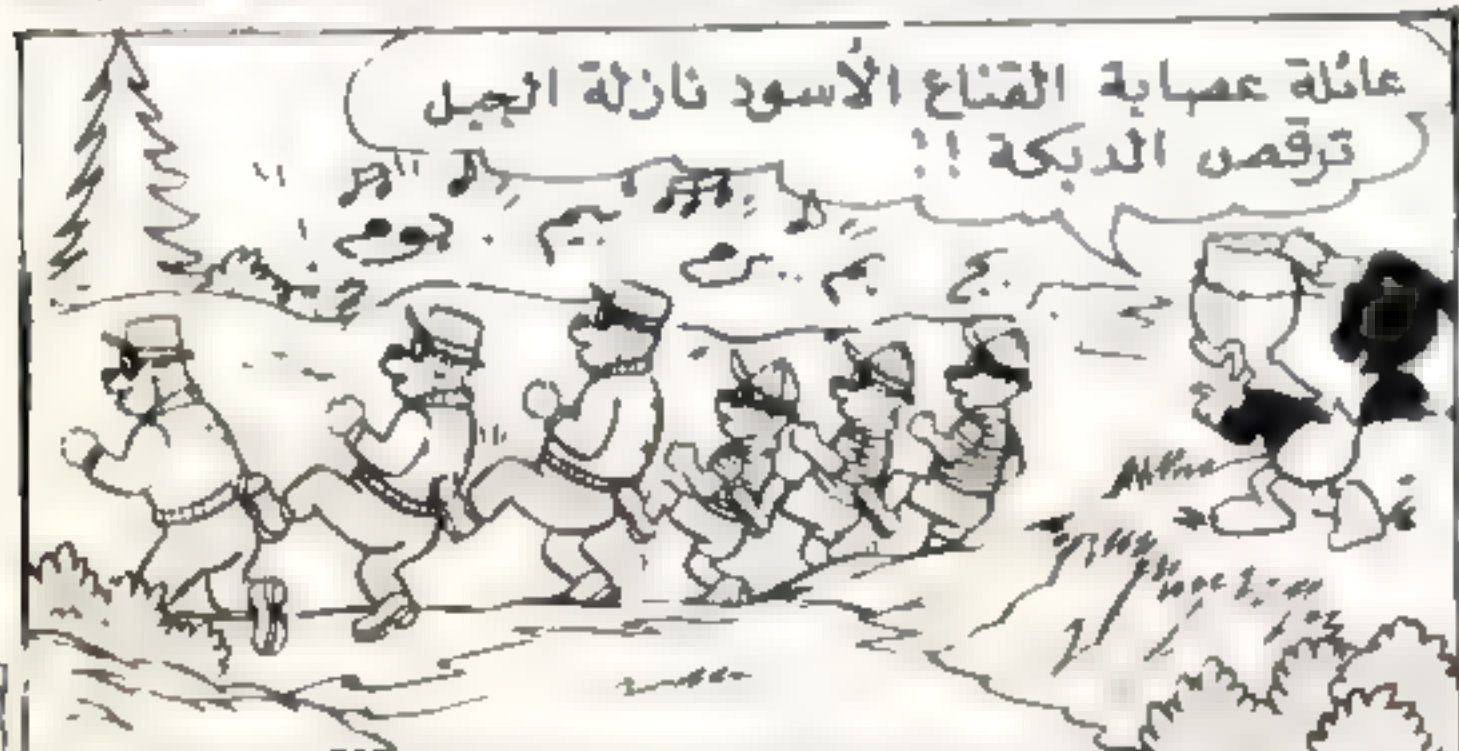 عائلة عصابة القناع الأسود نازلة الجبل
ترقص الدبكة !!